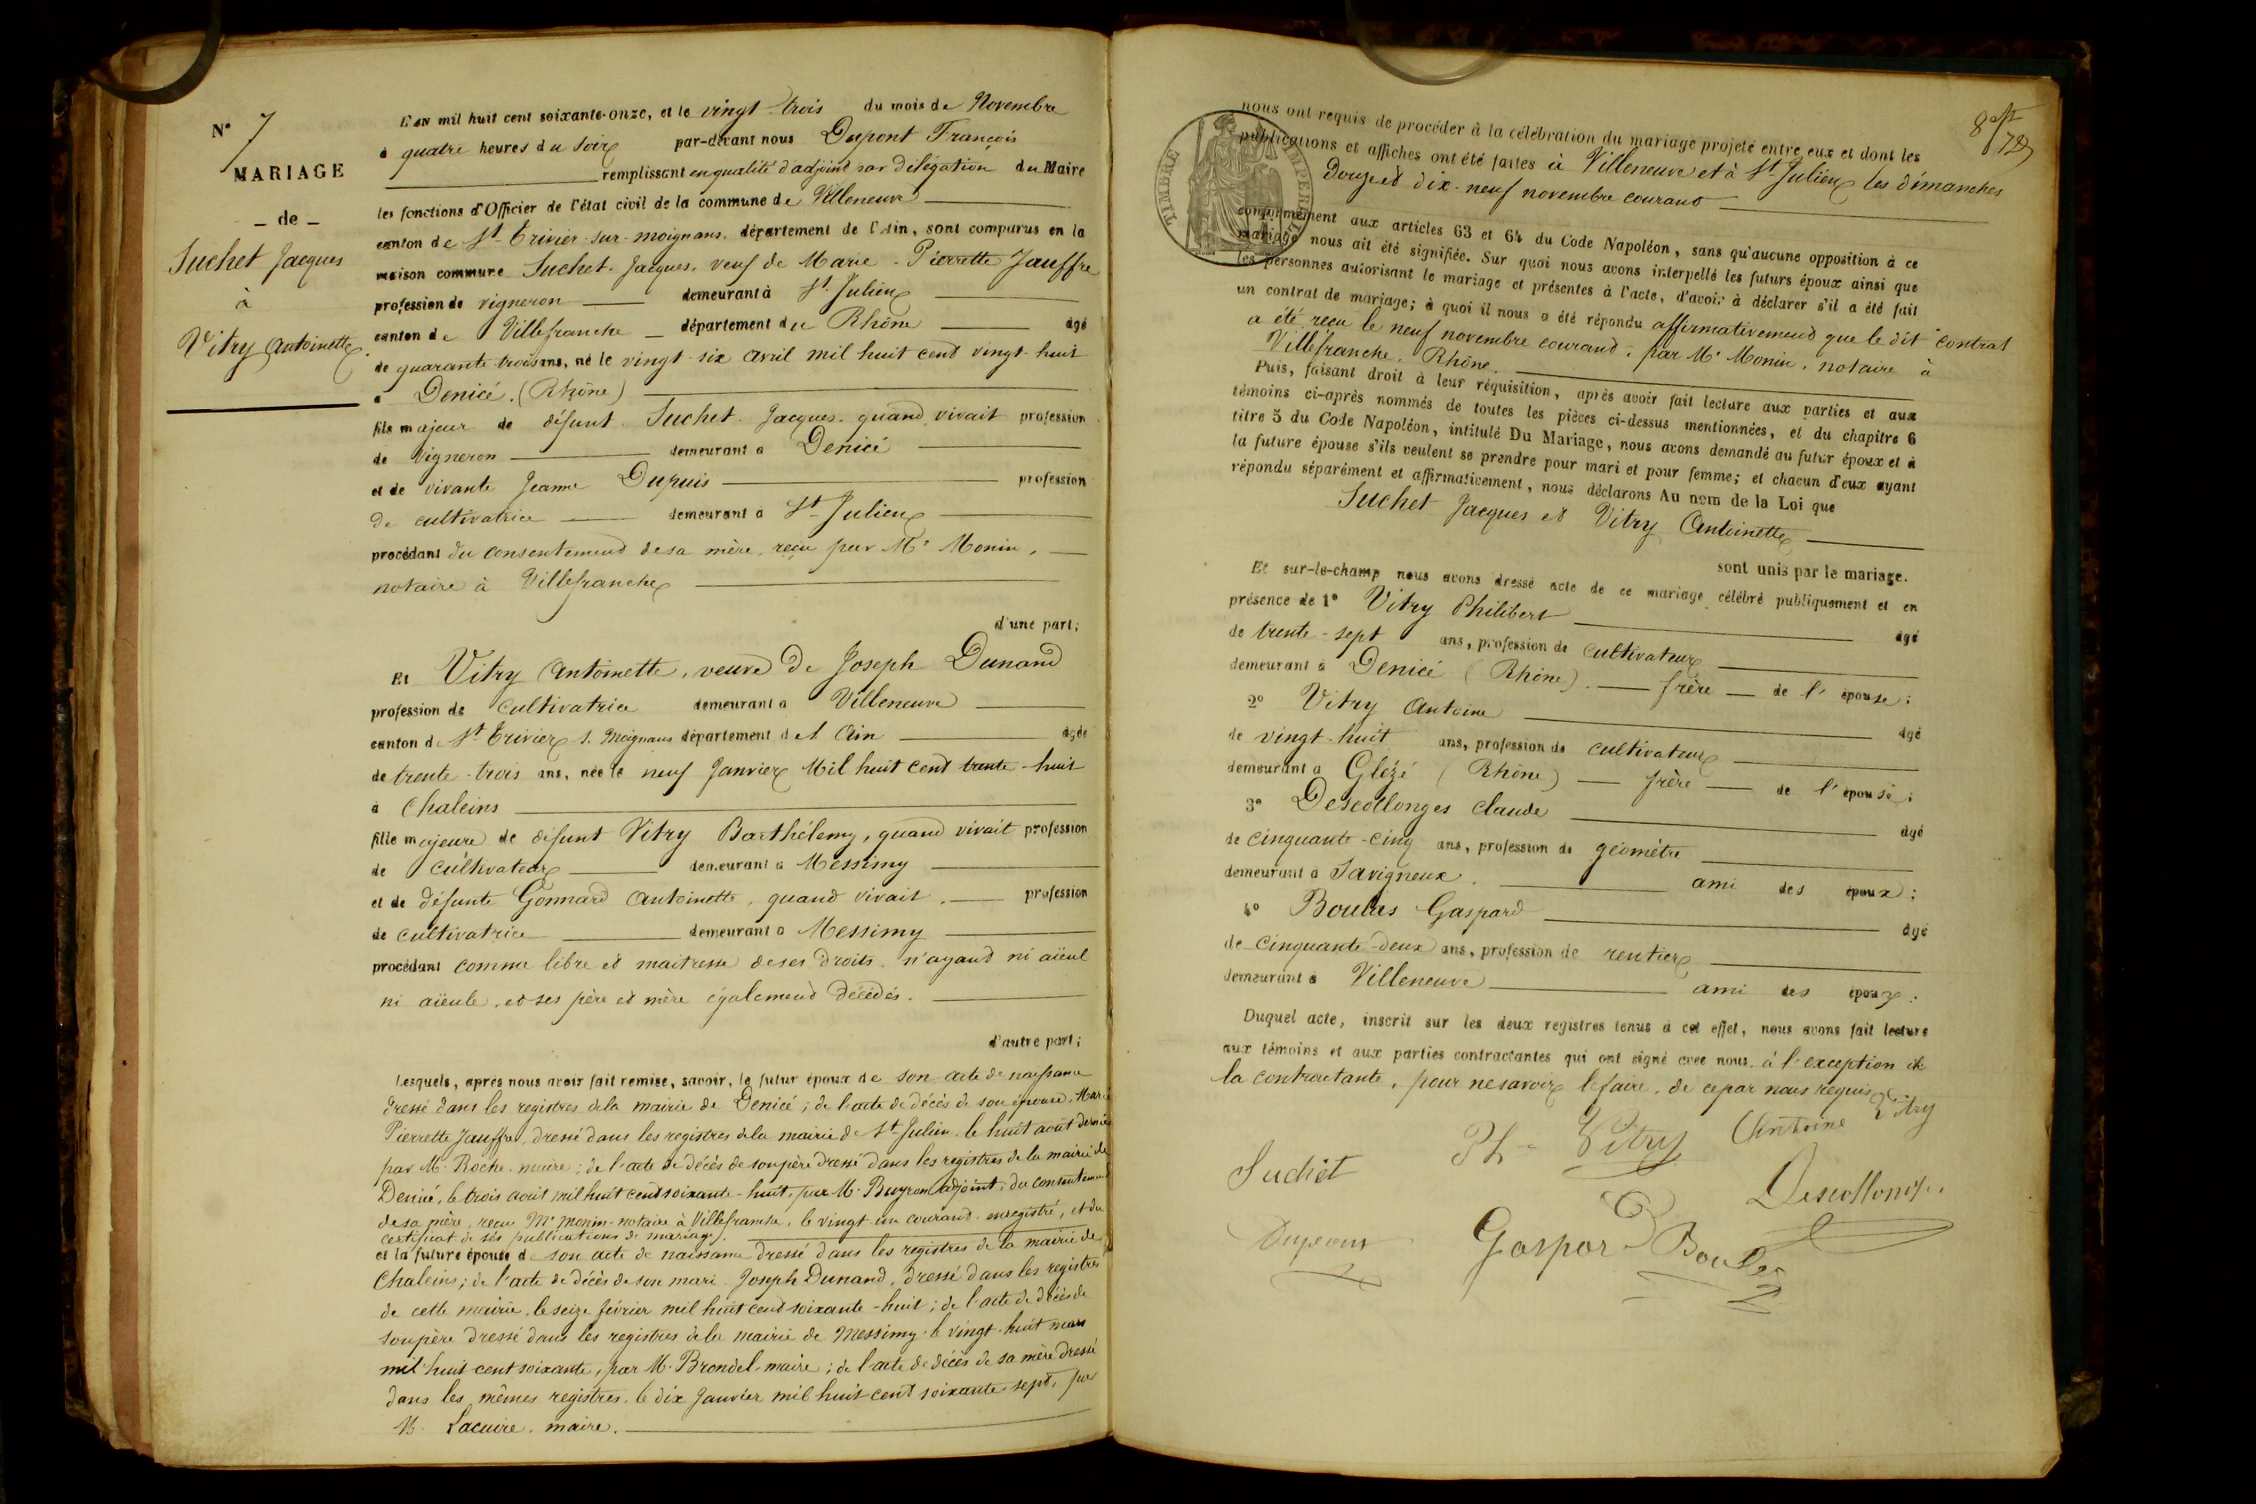 N° 7
MARIAGE
- de -
Suchet Jacques
à
Vitry Antoinette
L'an mil huit cent soixante-onze, et le vingt-trois du mois de Novembre
à quatre heures du soir par-devant nous Dupont François
remplissant en qualité d'adjoint par délégation du Maire
les fonctions d'Officier de l'état civil de la commune de Villeneuve
canton de St Trivier-sur-moignans, département de l'Ain, sont comparus en la
maison commune Suchet Jacques, veuf de Marie-Pierrette Jauffre
profession de vigneron demeurant à St Julien
canton de Villefranche département du Rhône âgé
de quarante-trois ans, né le vingt-six avril mil huit cent vingt-huit
à Denicé (Rhône)
fils majeur de défunt Suchet Jacques, quand vivait profession
de vigneron demeurant à Denicé
et de vivante Jeanne Dupuis profession
de cultivatrice demeurant à St Julien
procédant du consentement de sa mère, reçu par Me Monin,
notaire à Villefranche
d'une part;
Et Vitry Antoinette, veuve de Joseph Dunand
profession de cultivatrice demeurant à Villeneuve
canton de St Trivier s. Moignans département de l'Ain âgée
de trente-trois ans, née le neuf Janvier Mil huit cent trente-huit
à Chaleins
fille majeure de défunt Vitry Barthélemy, quand vivait profession
de cultivateur demeurant à Messimy
et de défunte Gonnard Antoinette, quand vivait, profession
de cultivatrice demeurant à Messimy
procédant comme libre et maîtresse de ses droits, n'ayant ni aïeul
ni aïeule, et ses père et mère également décédés.
d'autre part;
Lesquels, après nous avoir fait remise, savoir, le futur époux de son acte de naissance
dressé dans les registres de la mairie de Denicé; de l'acte de décès de son épouse, Marie
Pierrette Jauffre, dressé dans les registres de la mairie de St Julien le huit août dernier
par M. Roche, maire; de l'acte de décès de son père dressé dans les registres de la mairie de
Denicé, le trois août mil huit cent soixante-huit, par M. adjoint; du consentement
de sa mère, reçu Me Monin, notaire à Villefranche, le vingt-un courant, enregistré, et du
certificat de ses publications de mariage.
et la future épouse de son acte de naissance dressé dans les registres de la mairie de
Chaleins; de l'acte de décès de son mari Joseph Dunand, dressé dans les registres
de cette mairie le seize février mil huit cent soixante-huit; de l'acte de décès de
son père dressé dans les registres de la mairie de Messimy le vingt-huit mars
mil huit cent soixante, par M. Brondel, maire; de l'acte de décès de sa mère dressé
dans les mêmes registres, le dix Janvier mil huit cent soixante sept, par
M. Lacuire, maire.
TIMBRE IMPERIAL
nous ont requis de procéder à la célébration du mariage projeté entre eux et dont les
publications et affiches ont été faites à Villeneuve et à St Julien les dimanches
Douze et dix-neuf novembre courant
conformément aux articles 63 et 64 du Code Napoléon, sans qu'aucune opposition à ce
mariage nous ait été signifiée. Sur quoi nous avons interpellé les futurs époux ainsi que
les personnes autorisant le mariage et présentes à l'acte, d'avoir à déclarer s'il a été fait
un contrat de mariage; à quoi il nous a été répondu affirmativement que le dit contrat
a été reçu le neuf novembre courant, par Me Monin, notaire à
Villefranche, Rhône.
Puis, faisant droit à leur réquisition, après avoir fait lecture aux parties et aux
témoins ci-après nommés de toutes les pièces ci-dessus mentionnées, et du chapitre 6
titre 5 du Code Napoléon, intitulé Du Mariage, nous avons demandé au futur époux et à
la future épouse s'ils veulent se prendre pour mari et pour femme; et chacun d'eux ayant
répondu séparément et affirmativement, nous déclarons Au nom de la Loi que
Suchet Jacques et Vitry Antoinette
sont unis par le mariage.
Et sur-le-champ nous avons dressé acte de ce mariage célébré publiquement et en
présence de 1° Vitry Philibert âgé
de trente-sept ans, profession de cultivateur
demeurant à Denicé (Rhône). frère de l'épouse;
2° Vitry Antoine âgé
de vingt-huit ans, profession de cultivateur
demeurant à Glézé (Rhône) frère de l'épouse;
3° Descollonges Claude âgé
de cinquante-cinq ans, profession de géomètre
demeurant à Savigneux. ami des époux;
4° Boulas Gaspard âgé
de cinquante-deux ans, profession de rentier
demeurant à Villeneuve ami des époux;
Duquel acte, inscrit sur les deux registres tenus à cet effet, nous avons fait lecture
aux témoins et aux parties contractantes qui ont signé avec nous, à l'exception de
la contractante, pour ne savoir le faire, de ce par nous requis
Ph Vitry Antoine Vitry
Suchet
Descollonges
Dupont
Gaspard Boulas